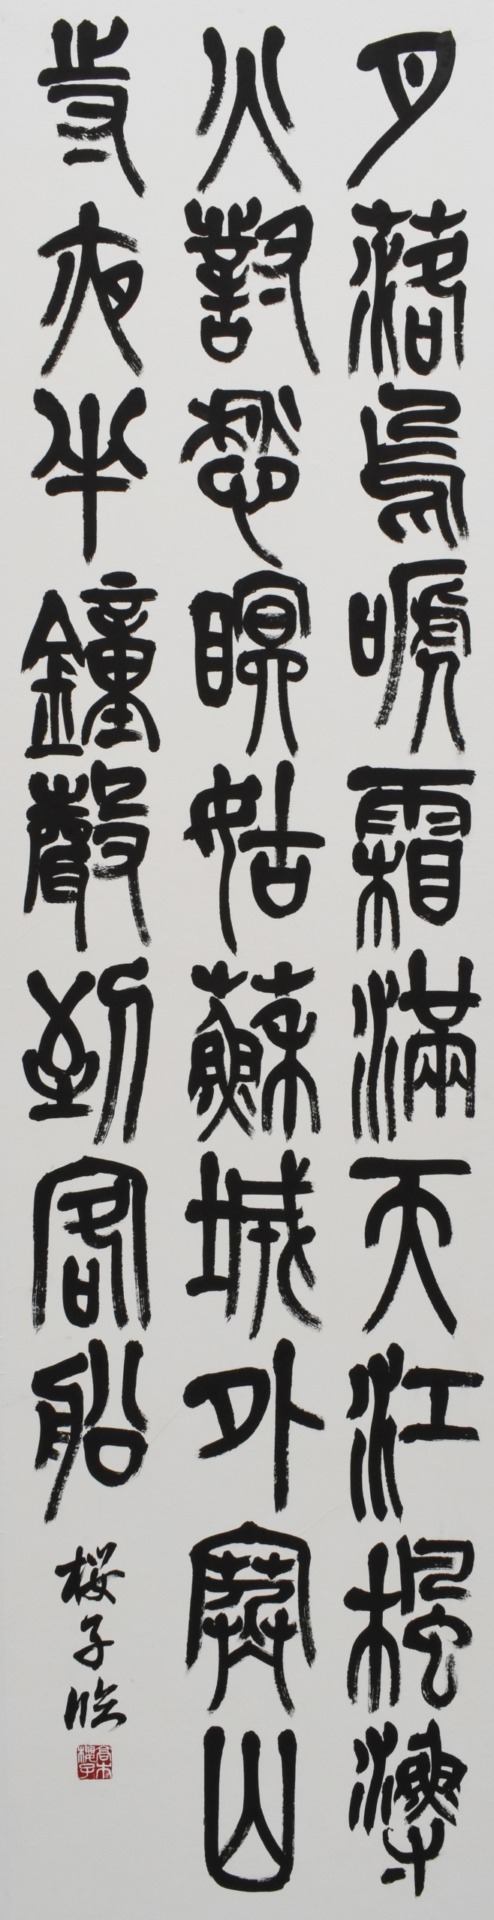 月落烏嗁霜滿天江楓漁
火對愁瞑姑蘇城外寒山
寺夜半鐘聲到客船
桜子臨
高木櫻子